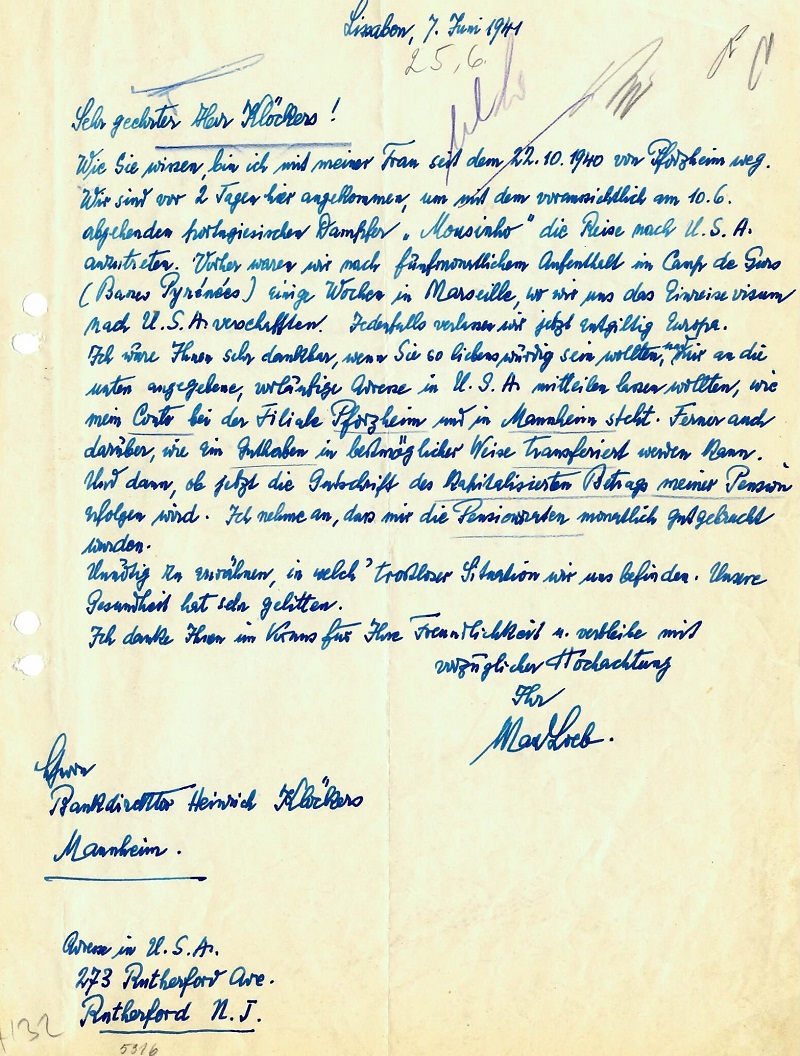 Lissabon, 7. Juni 1941
25.6.
Sehr geehrter Herr Klöckers!
Wie Sie wissen, bin ich mit meiner Frau seit dem 22.10.1940 von Pforzheim weg.
Wir sind vor 2 Tagen hier angekommen, um mit dem voraussichtlich am 10.6.
abgehenden portugiesischen Dampfer „Mousinho" die Reise nach U.S.A.
anzutreten. Vorher waren wir nach fünfmonatlichem Aufenthalt im Camp de Gurs
(Basses Pyrénées) einige Wochen in Marseille, wo wir uns das Einreisevisum
nach U.S.A. verschafften. Jedenfalls verlassen wir jetzt entgiltig Europa.
Ich wäre Ihnen sehr dankbar, wenn Sie so liebenswürdig sein wollten, mir an die
unten angegebene, vorläufige Adresse in U.S.A. mitteilen lassen wollten, wie
mein Conto bei der Filiale Pforzheim und in Mannheim steht. Ferner auch
darüber, wie ein Guthaben in bestmöglicher Weise transferiert werden kann.
Und dann, ob jetzt die Gutschrift des kapitalisierten Betrags meiner Pension
erfolgen wird. Ich nehme an, dass mir die Pensionsraten monatlich gutgebracht
wurden.
Unnötig zu erwähnen, in welch' trostloser Situation wir uns befinden. Unsere
Gesundheit hat sehr gelitten.
Ich danke Ihnen im Voraus für Ihre Freundlichkeit u. verbleibe mit
vorzüglicher Hochachtung
Ihr
Max Loeb.
Herrn
Bankdirektor Heinrich Klöckers
Mannheim.
Adresse in U.S.A.
273 Rutherford Ave.
Rutherford N.J.
132
5316